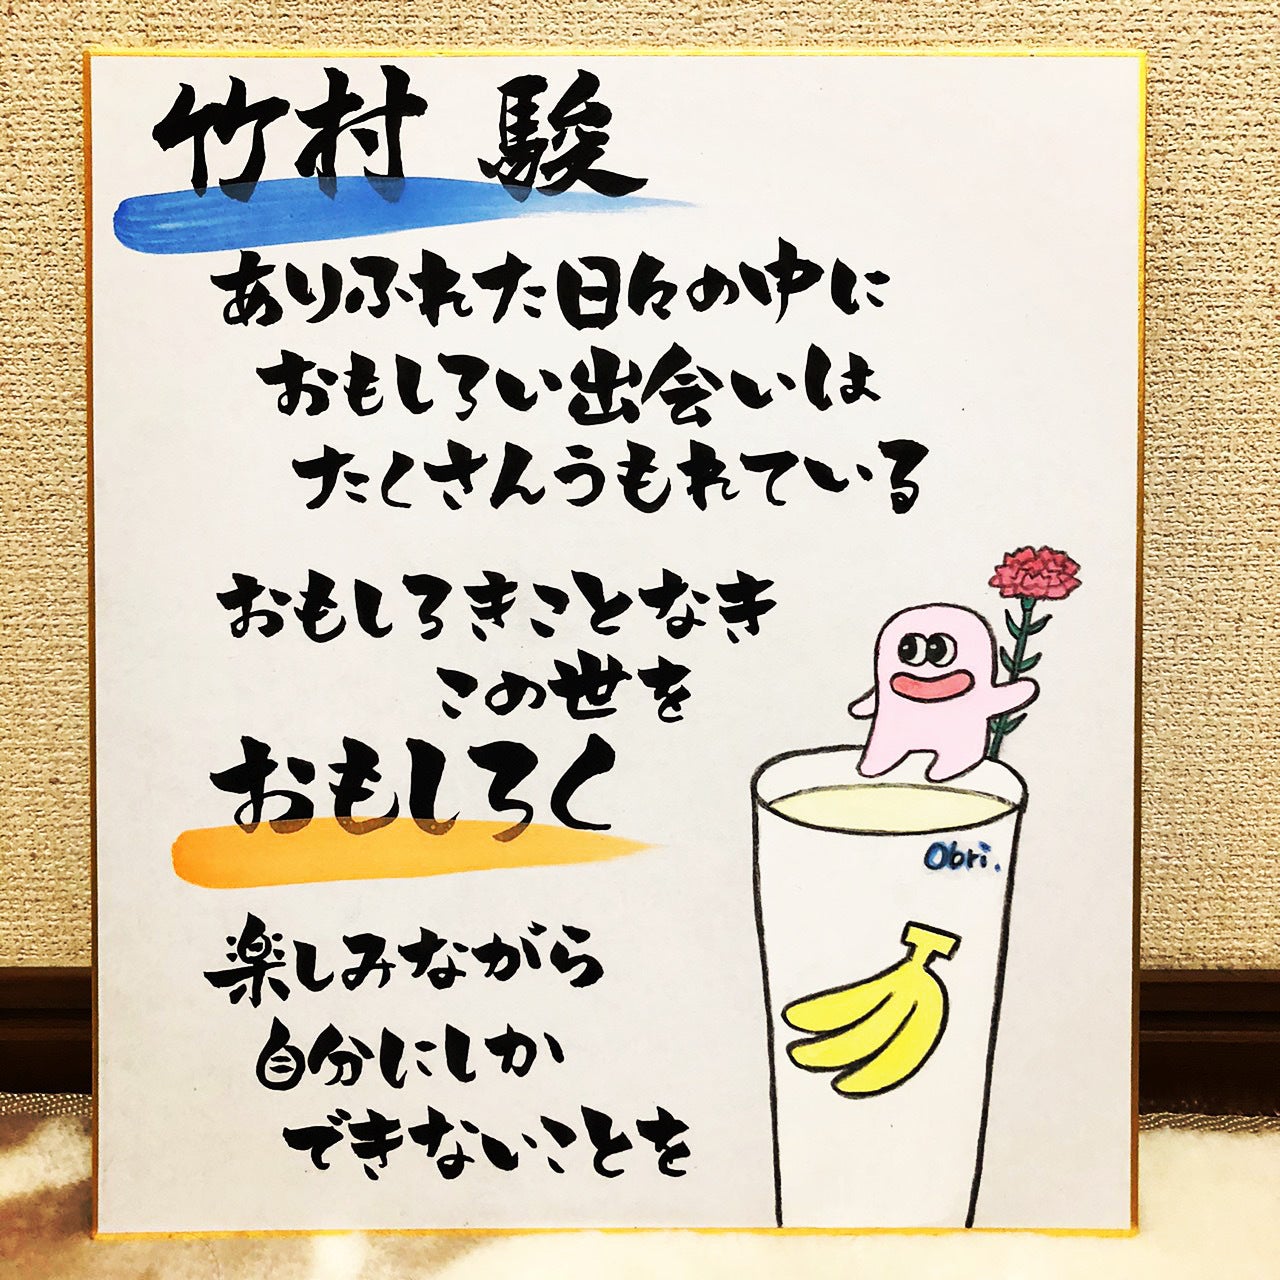 竹村 駿
ありふれた日々の中に
おもしろい出会いは
たくさんうもれている
おもしろきことなき
この世を
おもしろく
Obri.
楽しみながら
自分にしか
できないことを